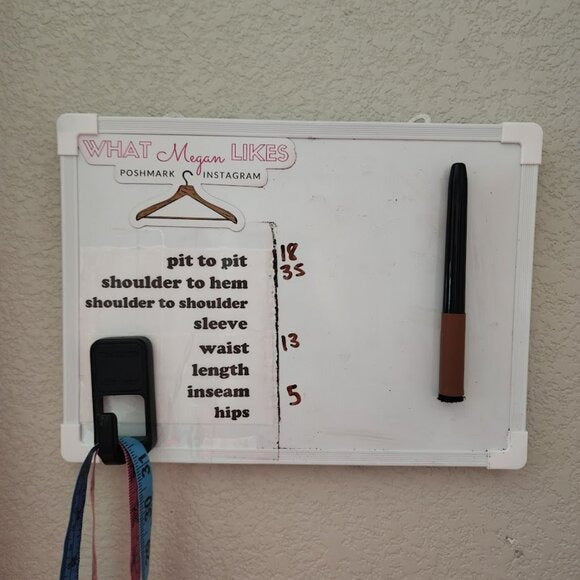 WHAT Megan LIKES
POSHMARK INSTAGRAM
pit to pit 18
shoulder to hem 35
shoulder to shoulder
sleeve
waist 13
length
inseam 5
hips
31
30